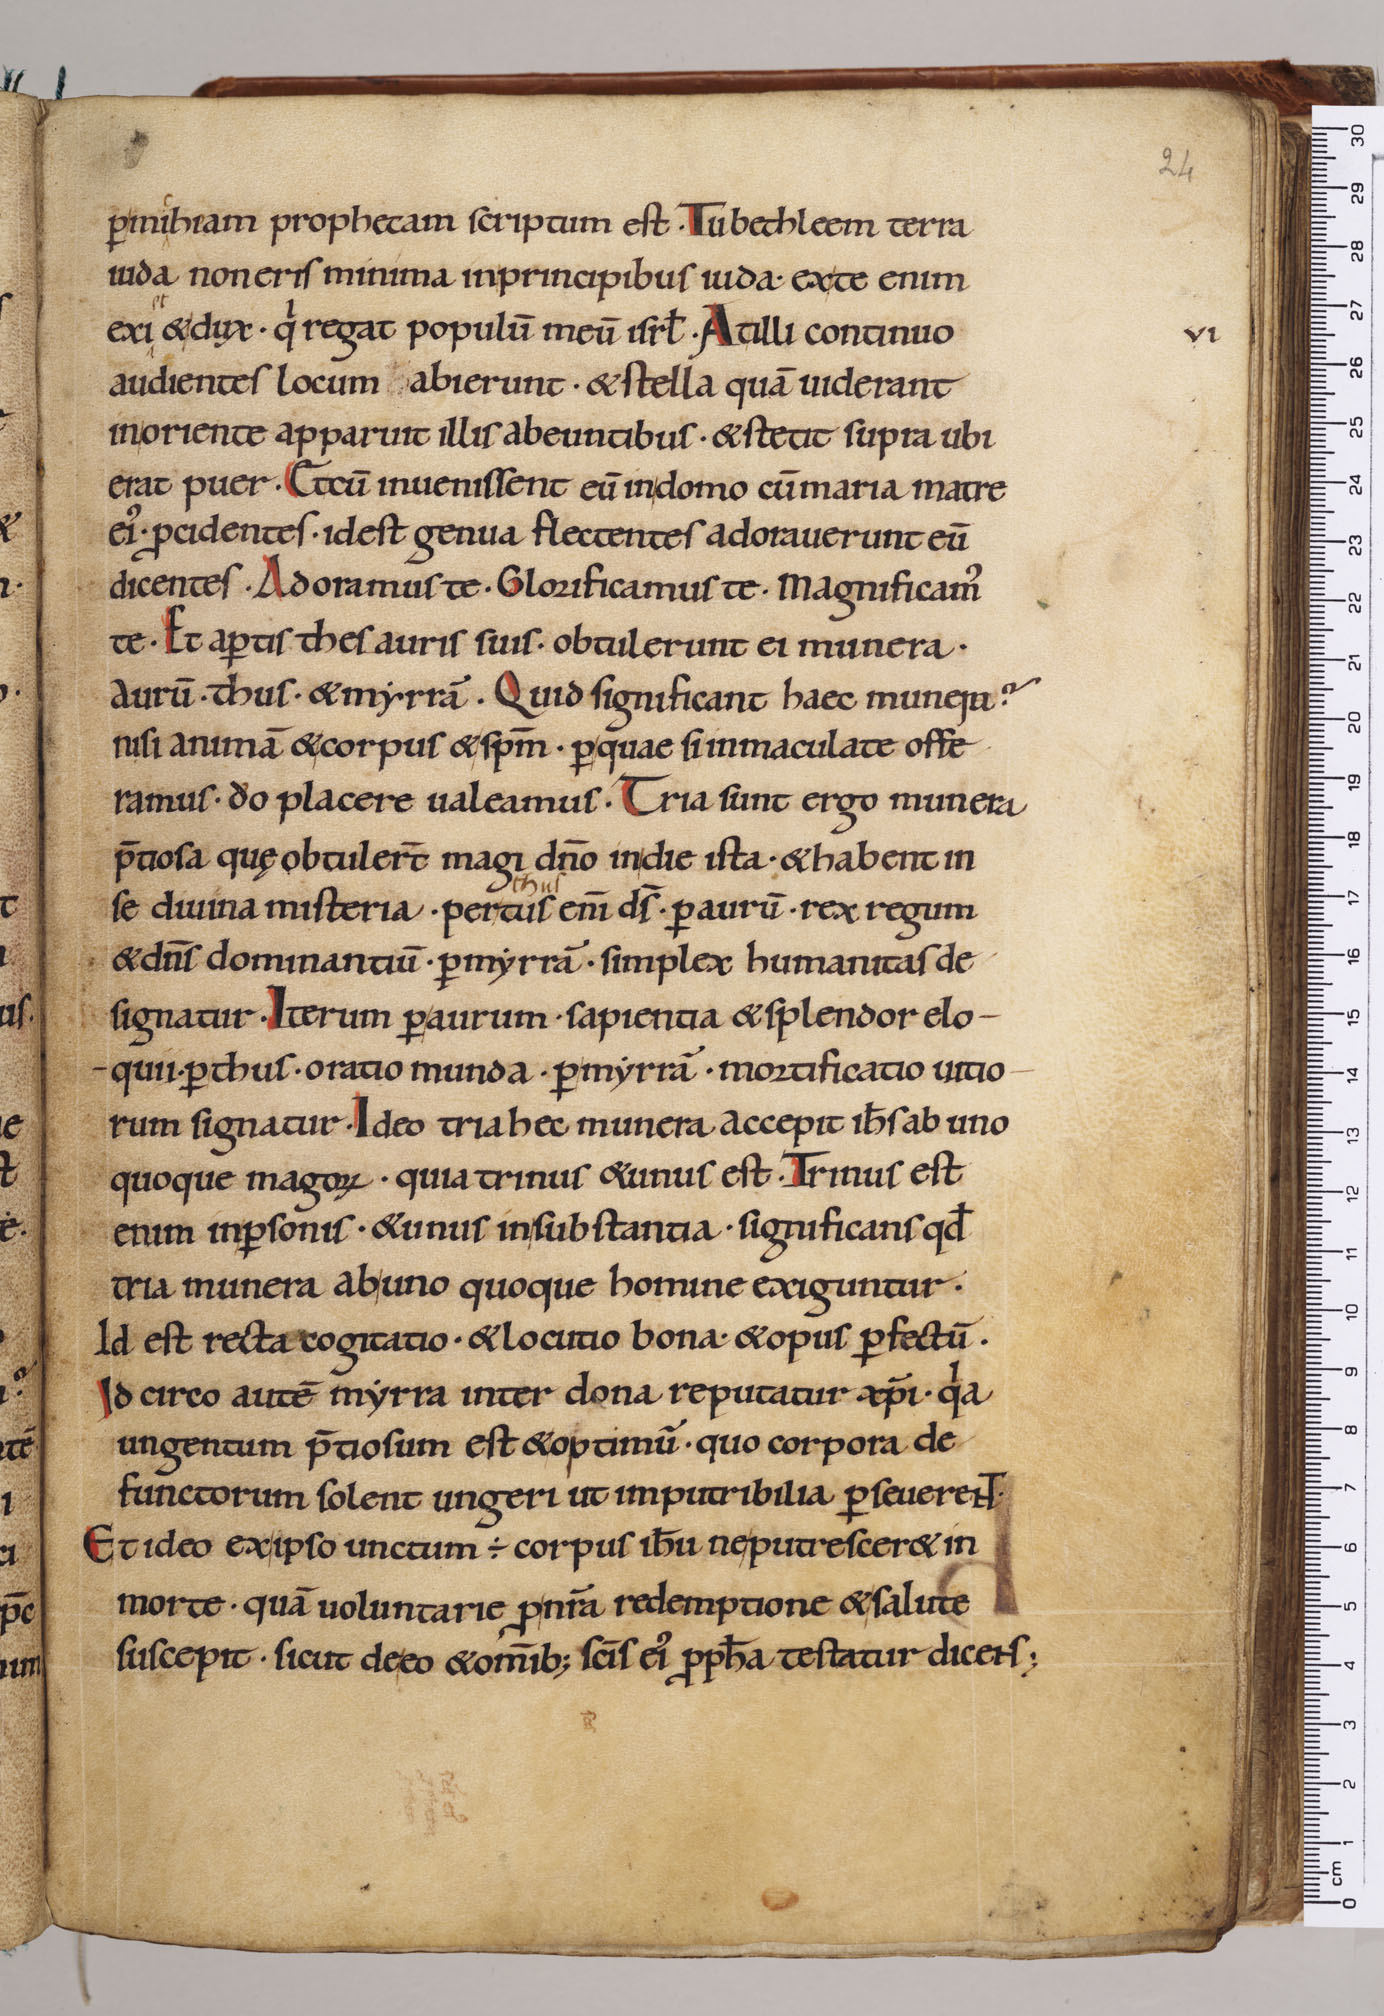 24
p̱mihiam prophetam scriptum est · Tu bethleem terra
iuda non eris minima in principibus iuda · ex te enim
et
exi & dux · qi regat populū meū isrł · At illi continuo
vi
audientes locum abierunt · & stella quā uiderant
in oriente apparuit illis abeuntibus · & stetit supra ubi
erat puer · Et cū inuenissent eū in domo cū maria matre
ei᾿ · p̱cidentes · id est genua flectentes adorauerunt eū
dicentes · Adoramus te · Glorificamus te · Magnificam᾿
te · Et ap̱tis thesauris suis · obtulerunt ei munera ·
aurū · thus · & mẏrrā · Quid significant haec munera?
nisi animā & corpus & spm̄ · p̱ quae si inmaculate offe
ramus · do placere ualeamus · Tria sunt ergo munera
p̄tiosa quę obtuler̄t magi dn̄o in die ista · & habent in
thus
se diuina misteria · per tus eni̅ ds̄ · p̱ aurū · rex regum
& dn̄s dominantiū · p̱ mẏrrā · simplex humanitas de
signatur · Iterum p̱ aurum · sapientia & splendor elo-
-quii · p̱ thus · oratio munda · p̱ mẏrrā · mortificatio uitio-
rum signatur · Ideo tria hec munera accepit ih̄s ab uno
quoque magoꝝ · quia trinus & unus est · Trinus est
enim in p̱sonis · & unus in substantia · significans qđ
tria munera ab uno quoque homine exiguntur ·
Id est recta cogitatio · & locutio bona · & opus p̱fectū ·
Idcirco autē mẏrra inter dona reputatur xp̄i · qia
ungentum p̄tiosum est & optimū · quo corpora de
functorum solent ungeri ut imputribilia p̱seuerent ·
Et ideo ex ipso unctum ÷ corpus ih̄u ne putrescer& in
morte · quā uoluntarie ꝓ nr̄a redemptione & salute
suscepit · sicut de eo & om̄ib; sc̄is ei᾿ p̱ pph̄a testatur dicens;